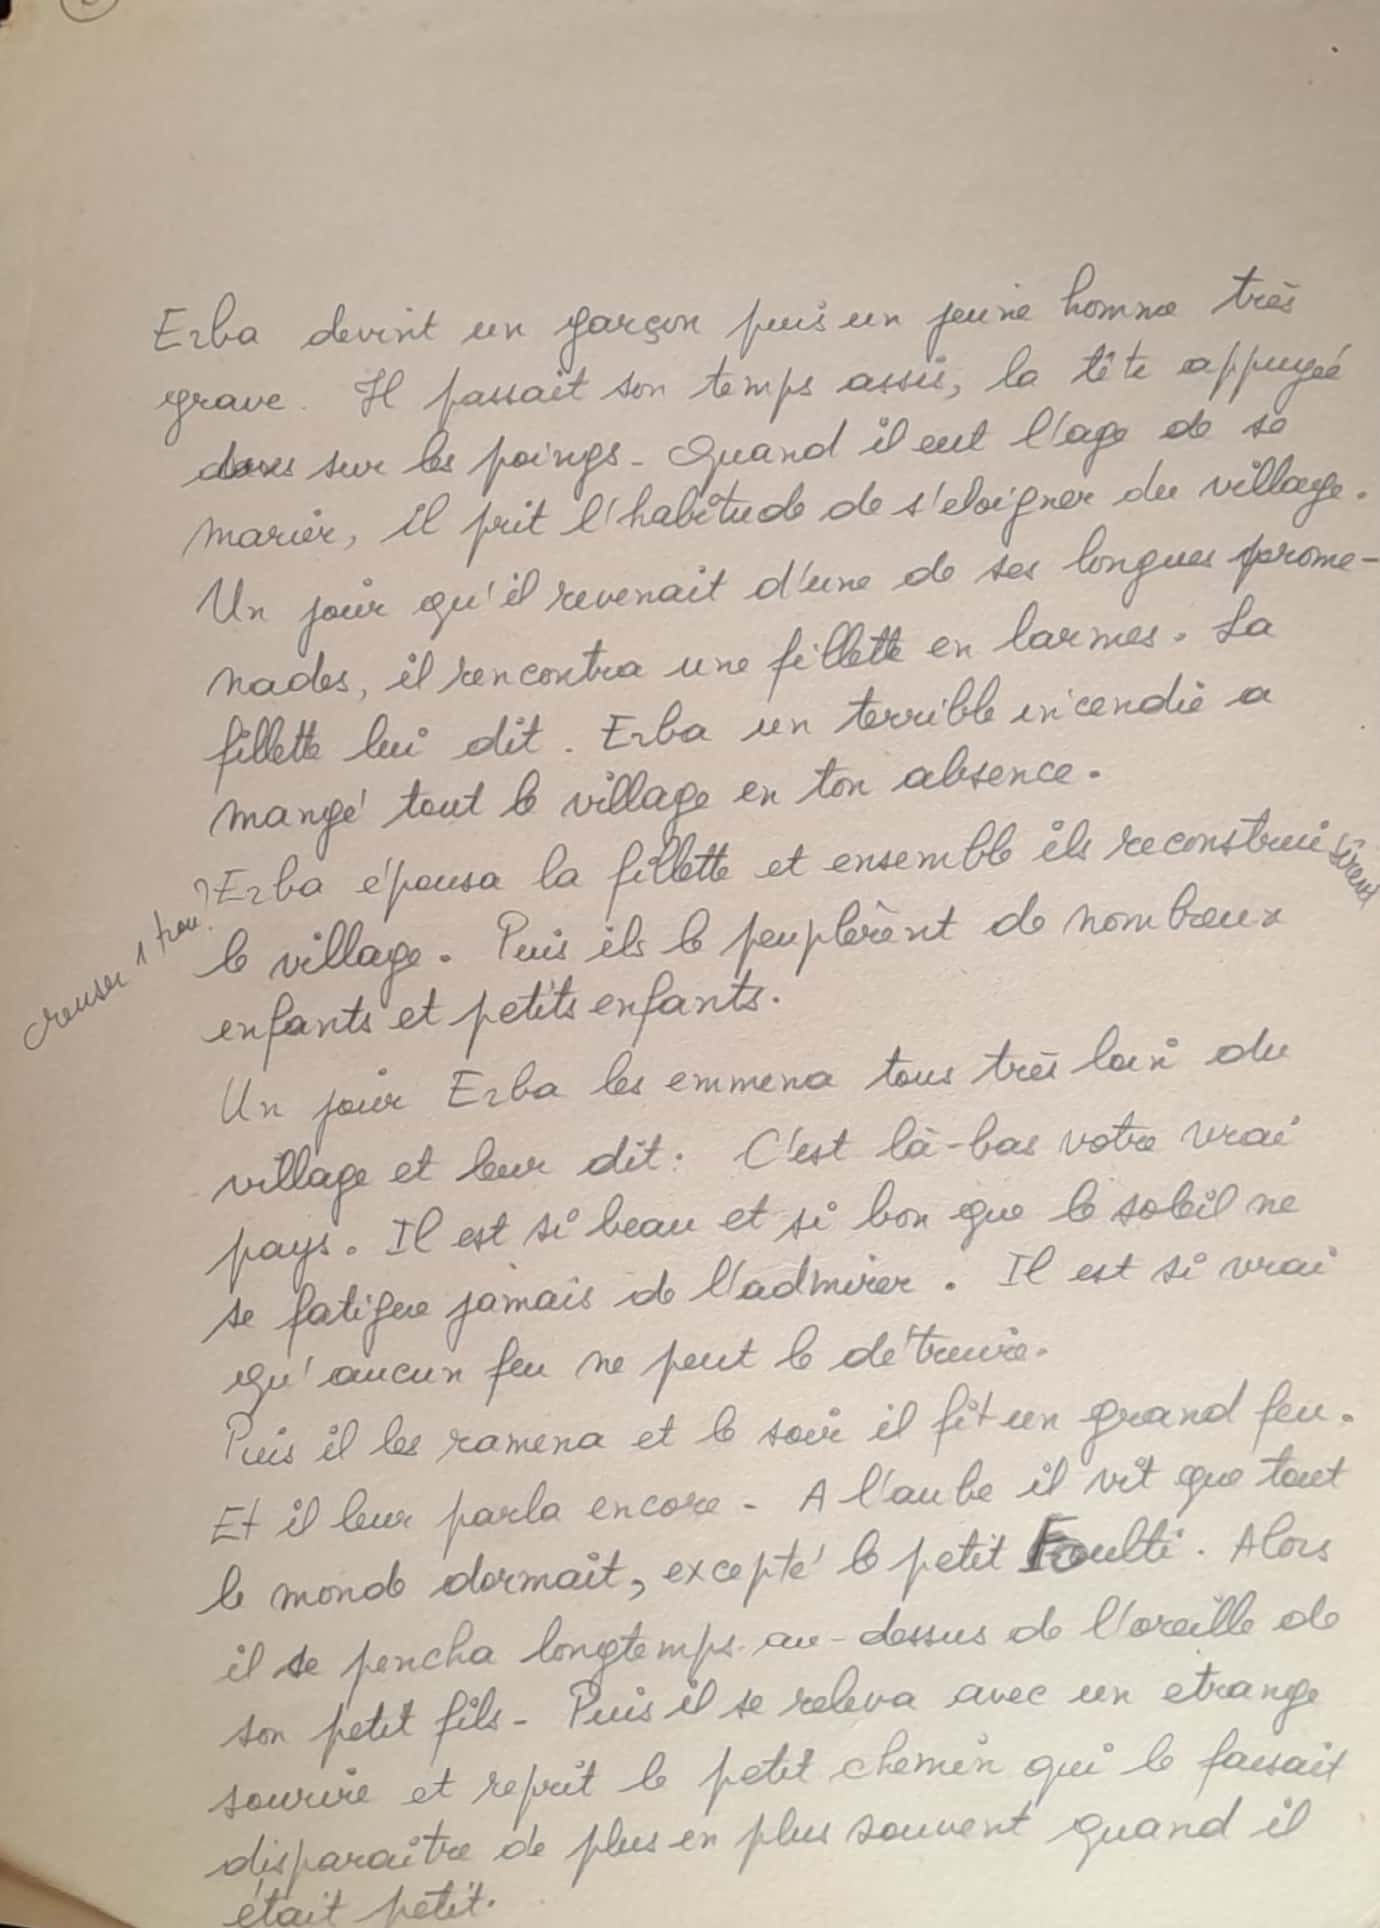 Erba devint un garçon puis un jeune homme très
grave. Il passait son temps assis, la tête appuyée
dans sur les poings - Quand il eut l'age de se
marier, il prit l'habitude de s'eloigner du village.
Un jour qu'il revenait d'une de ses longues prome-
nades, il rencontra une fillette en larmes. La
fillette lui dit. Erba un terrible incendie a
mangé tout le village en ton absence.
Erba épousa la fillette et ensemble ils reconstruisirent
creuser 1 trou ?
le village. Puis ils le peuplèrent de nombreux
enfants et petits enfants.
Un jour Erba les emmena tous très loin du
village et leur dit : C'est là-bas votre vrai
pays. Il est si beau et si bon que le soleil ne
se fatigue jamais de l'admirer. Il est si vrai
qu'aucun feu ne peut le détruire.
Puis il les ramena et le soir il fit un grand feu.
Et il leur parla encore - A l'aube il vit que tout
le monde dormait, excepté le petit Foulti. Alors
il se pencha longtemps au-dessus de l'oreille de
son petit fils - Puis il se releva avec un etrange
sourire et reprit le petit chemin qui le faisait
disparaître de plus en plus souvent quand il
était petit.